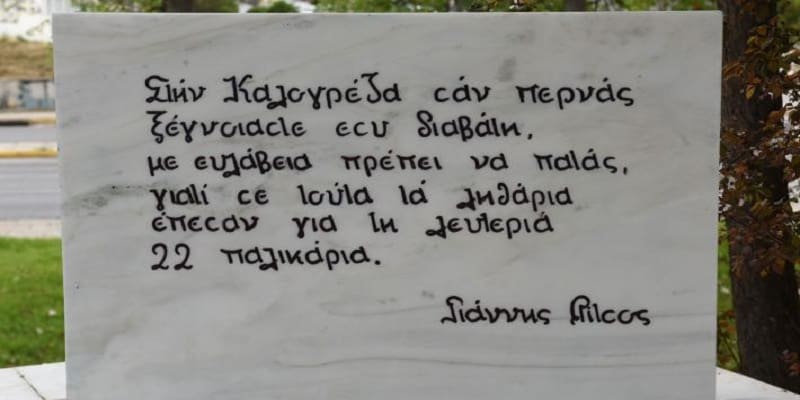 Στήν Καλογρέζα σάν περνάς
ξέγνοιαστε εσύ διαβάτη,
με ευλάβεια πρέπει να πατάς,
γιατί σε τούτα τά ληθάρια
έπεσαν για τη λευτεριά
22 παλικάρια.
Γιάννης Ρίτσος